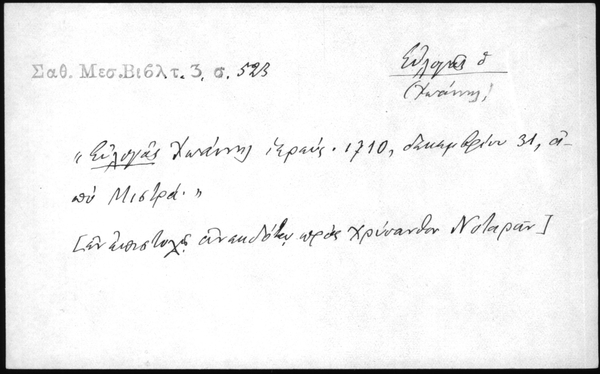 Σαθ. Μεσ. Βιβλ τ. 3, σ. 523
Εὐλογᾶς ὁ
(Ἰωάννης)
"Εὐλογᾶς Ἰωάννης ἱερεύς. 1710, δεκεμβρίου 31, ἀ-
πὸ Μιστρᾶ."
[ἐν ἐπιστολῇ ἀνεκδότῳ πρὸς Χρύσανθον Νοταρᾶν]